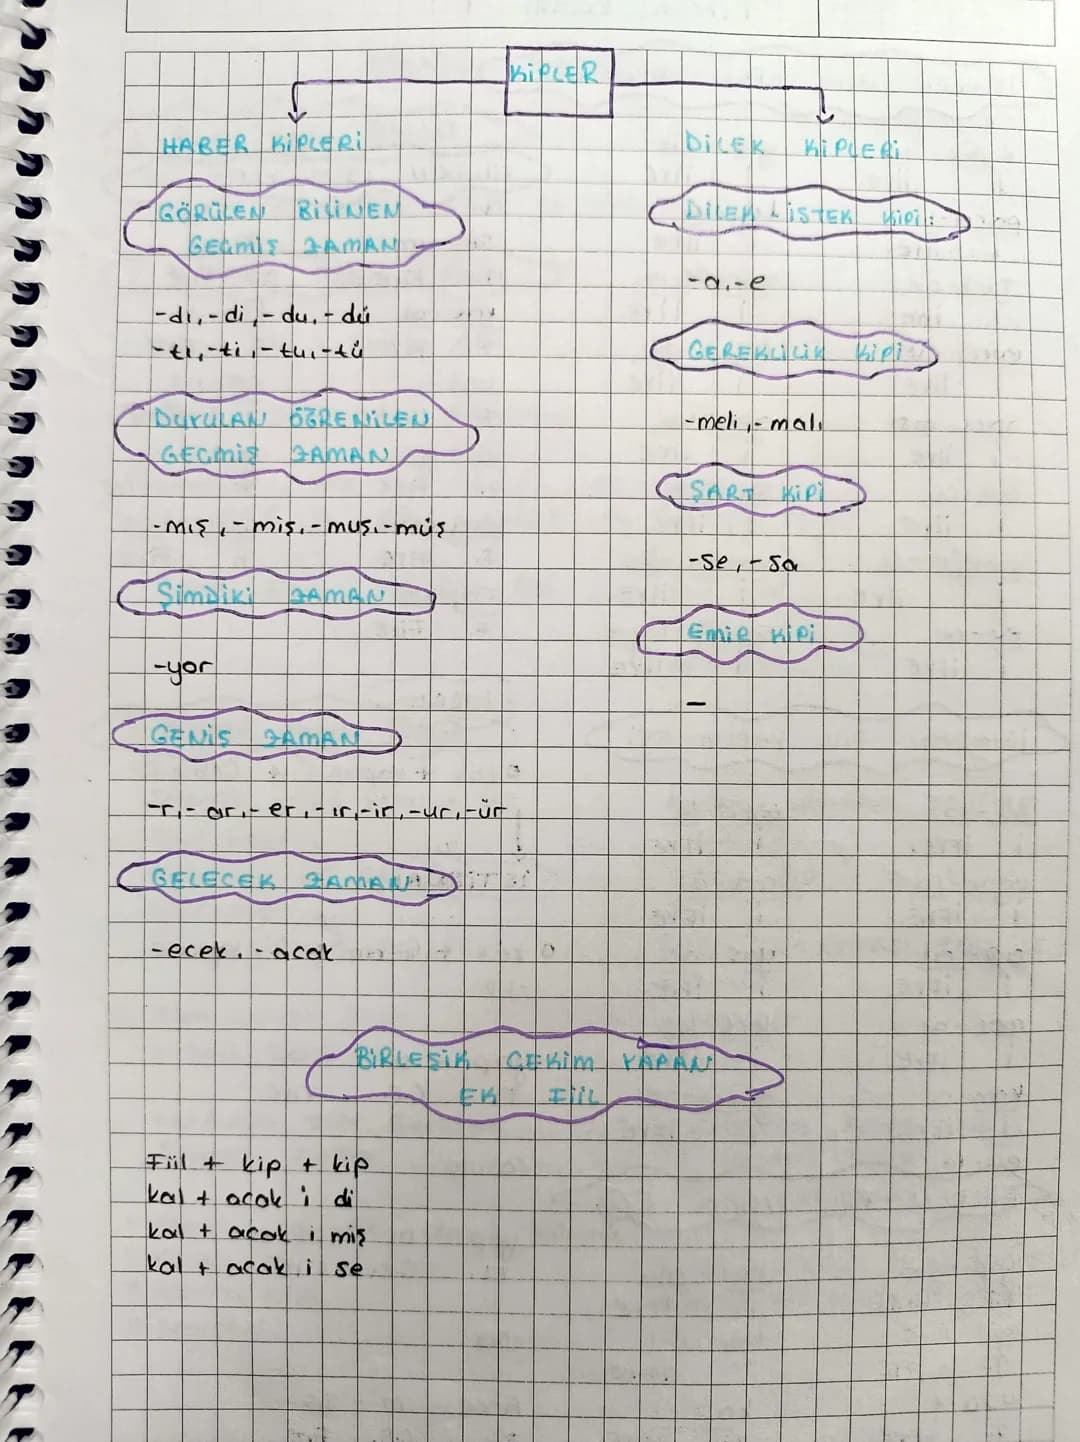 KİPLER
HABER KİPLERİ
GÖRÜLEN BİLİNEN
GEÇMİŞ ZAMAN
-dı,-di,-du,-dü
-tı,-ti,-tu,-tü
DUYULAN ÖĞRENİLEN
GEÇMİŞ ZAMAN
-mış,-miş,-muş,-müş
ŞİMDİKİ ZAMAN
-yor
GENİŞ ZAMAN
-r,-ar,-er,-ır,-ir,-ur,-ür
GELECEK ZAMAN
-ecek,-acak
DİLEK KİPLERİ
DİLEK - İSTEK KİPİ:
-a,-e
GEREKLİLİK KİPİ
-meli,-malı
ŞART KİPİ
-se,-sa
EMİR KİPİ
-
BİRLEŞİK ÇEKİM YAPAN
EK FİİL
Fiil + kip + kip
kal + acak i di
kal + acak i miş
kal + acak i se